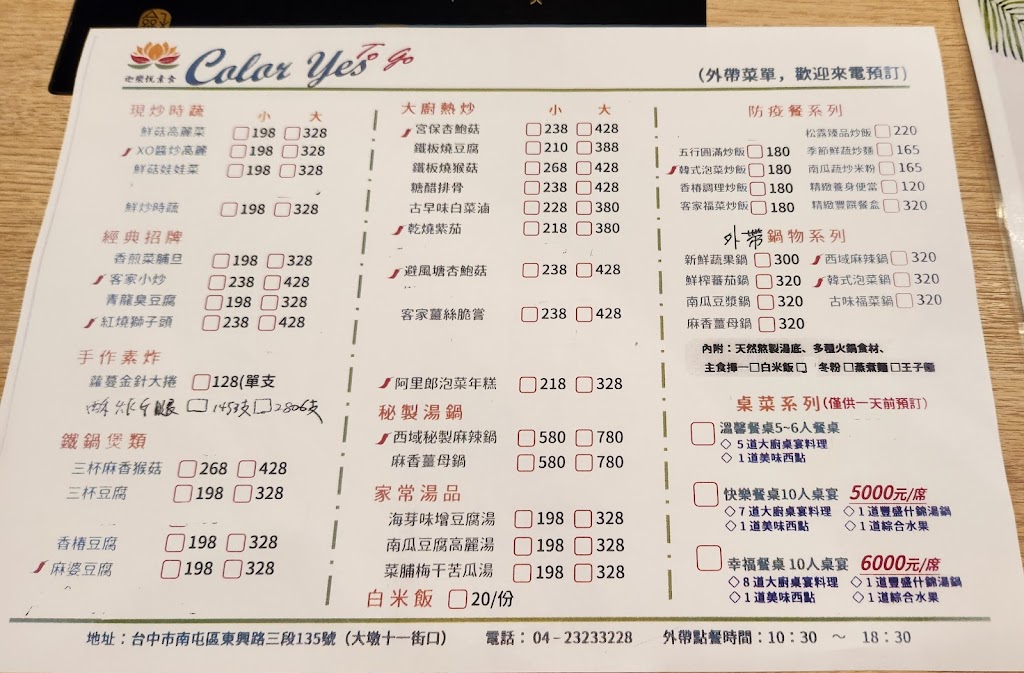 迦樂悅素食
Color Yes To Go
(外帶菜單，歡迎來電預訂)
現炒時蔬 小 大
鮮菇高麗菜 198 328
XO醬炒高麗 198 328
鮮菇娃娃菜 198 328
鮮炒時蔬 198 328
經典招牌
香煎菜脯旦 198 328
客家小炒 238 428
青龍臭豆腐 198 328
紅燒獅子頭 238 428
手作素炸
蘿蔓金針大捲 128(單支
145 3支 280 6支
鐵鍋煲類
三杯麻香猴菇 268 428
三杯豆腐 198 328
香椿豆腐 198 328
麻婆豆腐 198 328
大廚熱炒 小 大
宮保杏鮑菇 238 428
鐵板燒豆腐 210 388
鐵板燒猴菇 268 428
糖醋排骨 238 428
古早味白菜滷 228 380
乾燒紫茄 218 380
避風塘杏鮑菇 238 428
客家薑絲脆嘗 238 428
阿里郎泡菜年糕 218 328
秘製湯鍋
西域秘製麻辣鍋 580 780
麻香薑母鍋 580 780
家常湯品
海芽味增豆腐湯 198 328
南瓜豆腐高麗湯 198 328
菜脯梅干苦瓜湯 198 328
白米飯 20/份
防疫餐系列
松露臻品炒飯 220
五行圓滿炒飯 180 季節鮮蔬炒麵 165
韓式泡菜炒飯 180 南瓜蔬炒米粉 165
香椿調理炒飯 180 精緻養身便當 120
客家福菜炒飯 180 精緻豐饌餐盒 320
外帶 鍋物系列
新鮮蔬果鍋 300 西域麻辣鍋 320
鮮榨蕃茄鍋 320 韓式泡菜鍋 320
南瓜豆漿鍋 320 古味福菜鍋 320
麻香薑母鍋 320
內附：天然熬製湯底、多種火鍋食材、
主食擇一□白米飯□ 冬粉□蒸煮麵□王子麵
桌菜系列(僅供一天前預訂)
溫馨餐桌5~6人餐桌
◇ 5道大廚桌宴料理
◇ 1道美味西點
快樂餐桌10人桌宴 5000元/席
◇7道大廚桌宴料理 ◇1道豐盛什錦湯鍋
◇1道美味西點 ◇1道綜合水果
幸福餐桌10人桌宴 6000元/席
◇8道大廚桌宴料理 ◇1道豐盛什錦湯鍋
◇1道美味西點 ◇1道綜合水果
地址：台中市南屯區東興路三段135號（大墩十一街口） 電話：04-23233228 外帶點餐時間：10：30 ～ 18：30